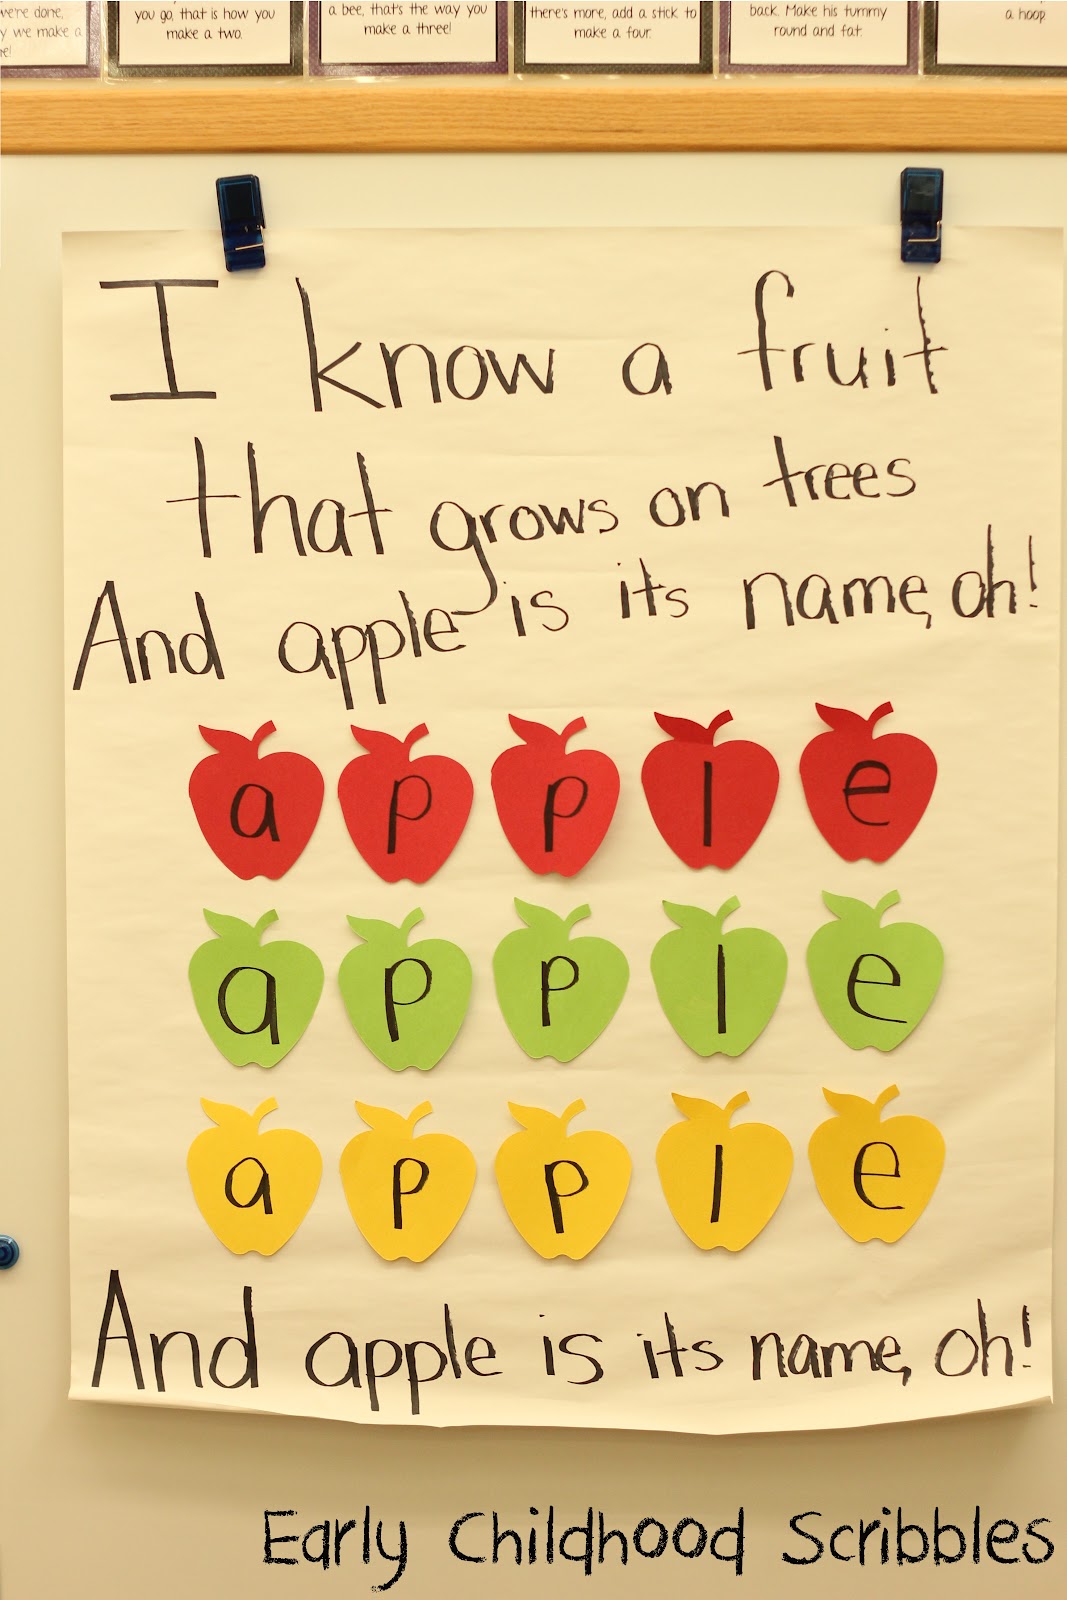 we're done,
y we make a
e!
you go, that is how you
make a two.
a bee, that's the way you
make a three!
there's more, add a stick to
make a four.
back. Make his tummy
round and fat.
a hoop
I know a fruit
that grows on trees
And apple is its name, oh!
a p p l e
a p p l e
a p p l e
And apple is its name, oh!
Early Childhood Scribbles